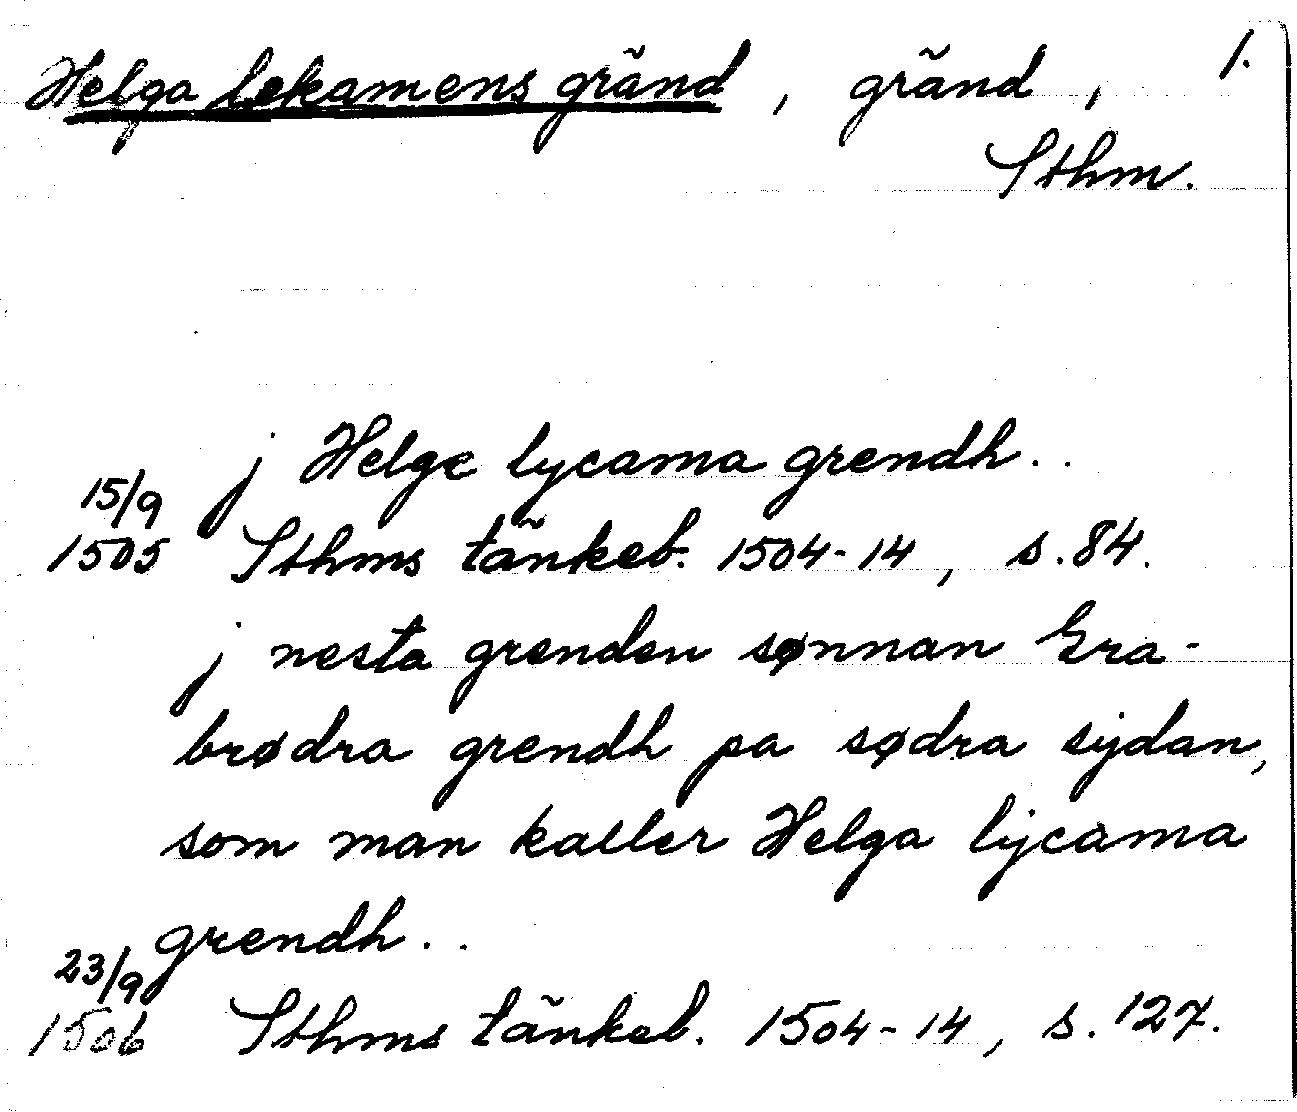 Helga lekamens gränd, gränd, 1.
Sthm.
j Helge lycama grendh..
15/9
1505 Sthms tänkeb. 1504-14, s. 84.
j nesta grenden sønnan Gra-
brødra grendh pa sødra sijdan,
som man kaller Helga lijcama
grendh..
23/9
1506 Sthms tänkeb. 1504-14, s. 127.